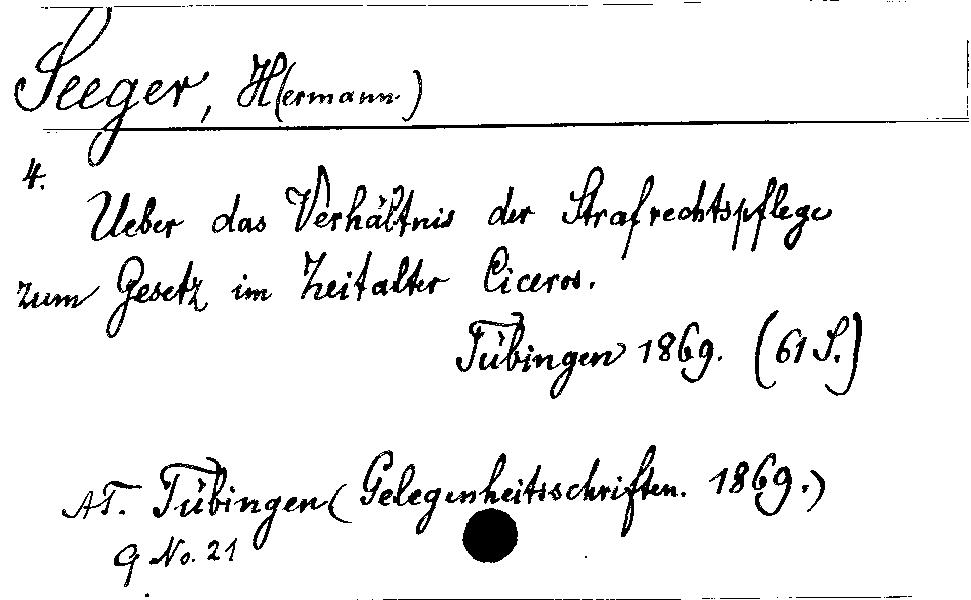 Seeger, H(ermann.)
4.
Ueber das Verhältnis der Strafrechtspflege
zum Gesetz im Zeitalter Ciceros.
Tübingen 1869. (61 S.)
AT. Tübingen (Gelegenheitsschriften. 1869.)
9 No. 21